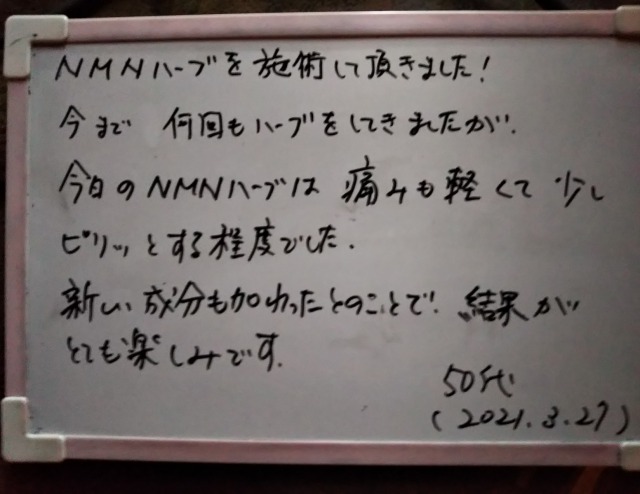 NMNハーブを施術して頂きました!
今まで 何回もハーブをしてきましたが.
今日のNMNハーブは 痛みも軽くて 少し
ピリッとする程度でした.
新しい成分も加わったとのことで! 結果が
とても楽しみです.
50代
(2021.3.27)